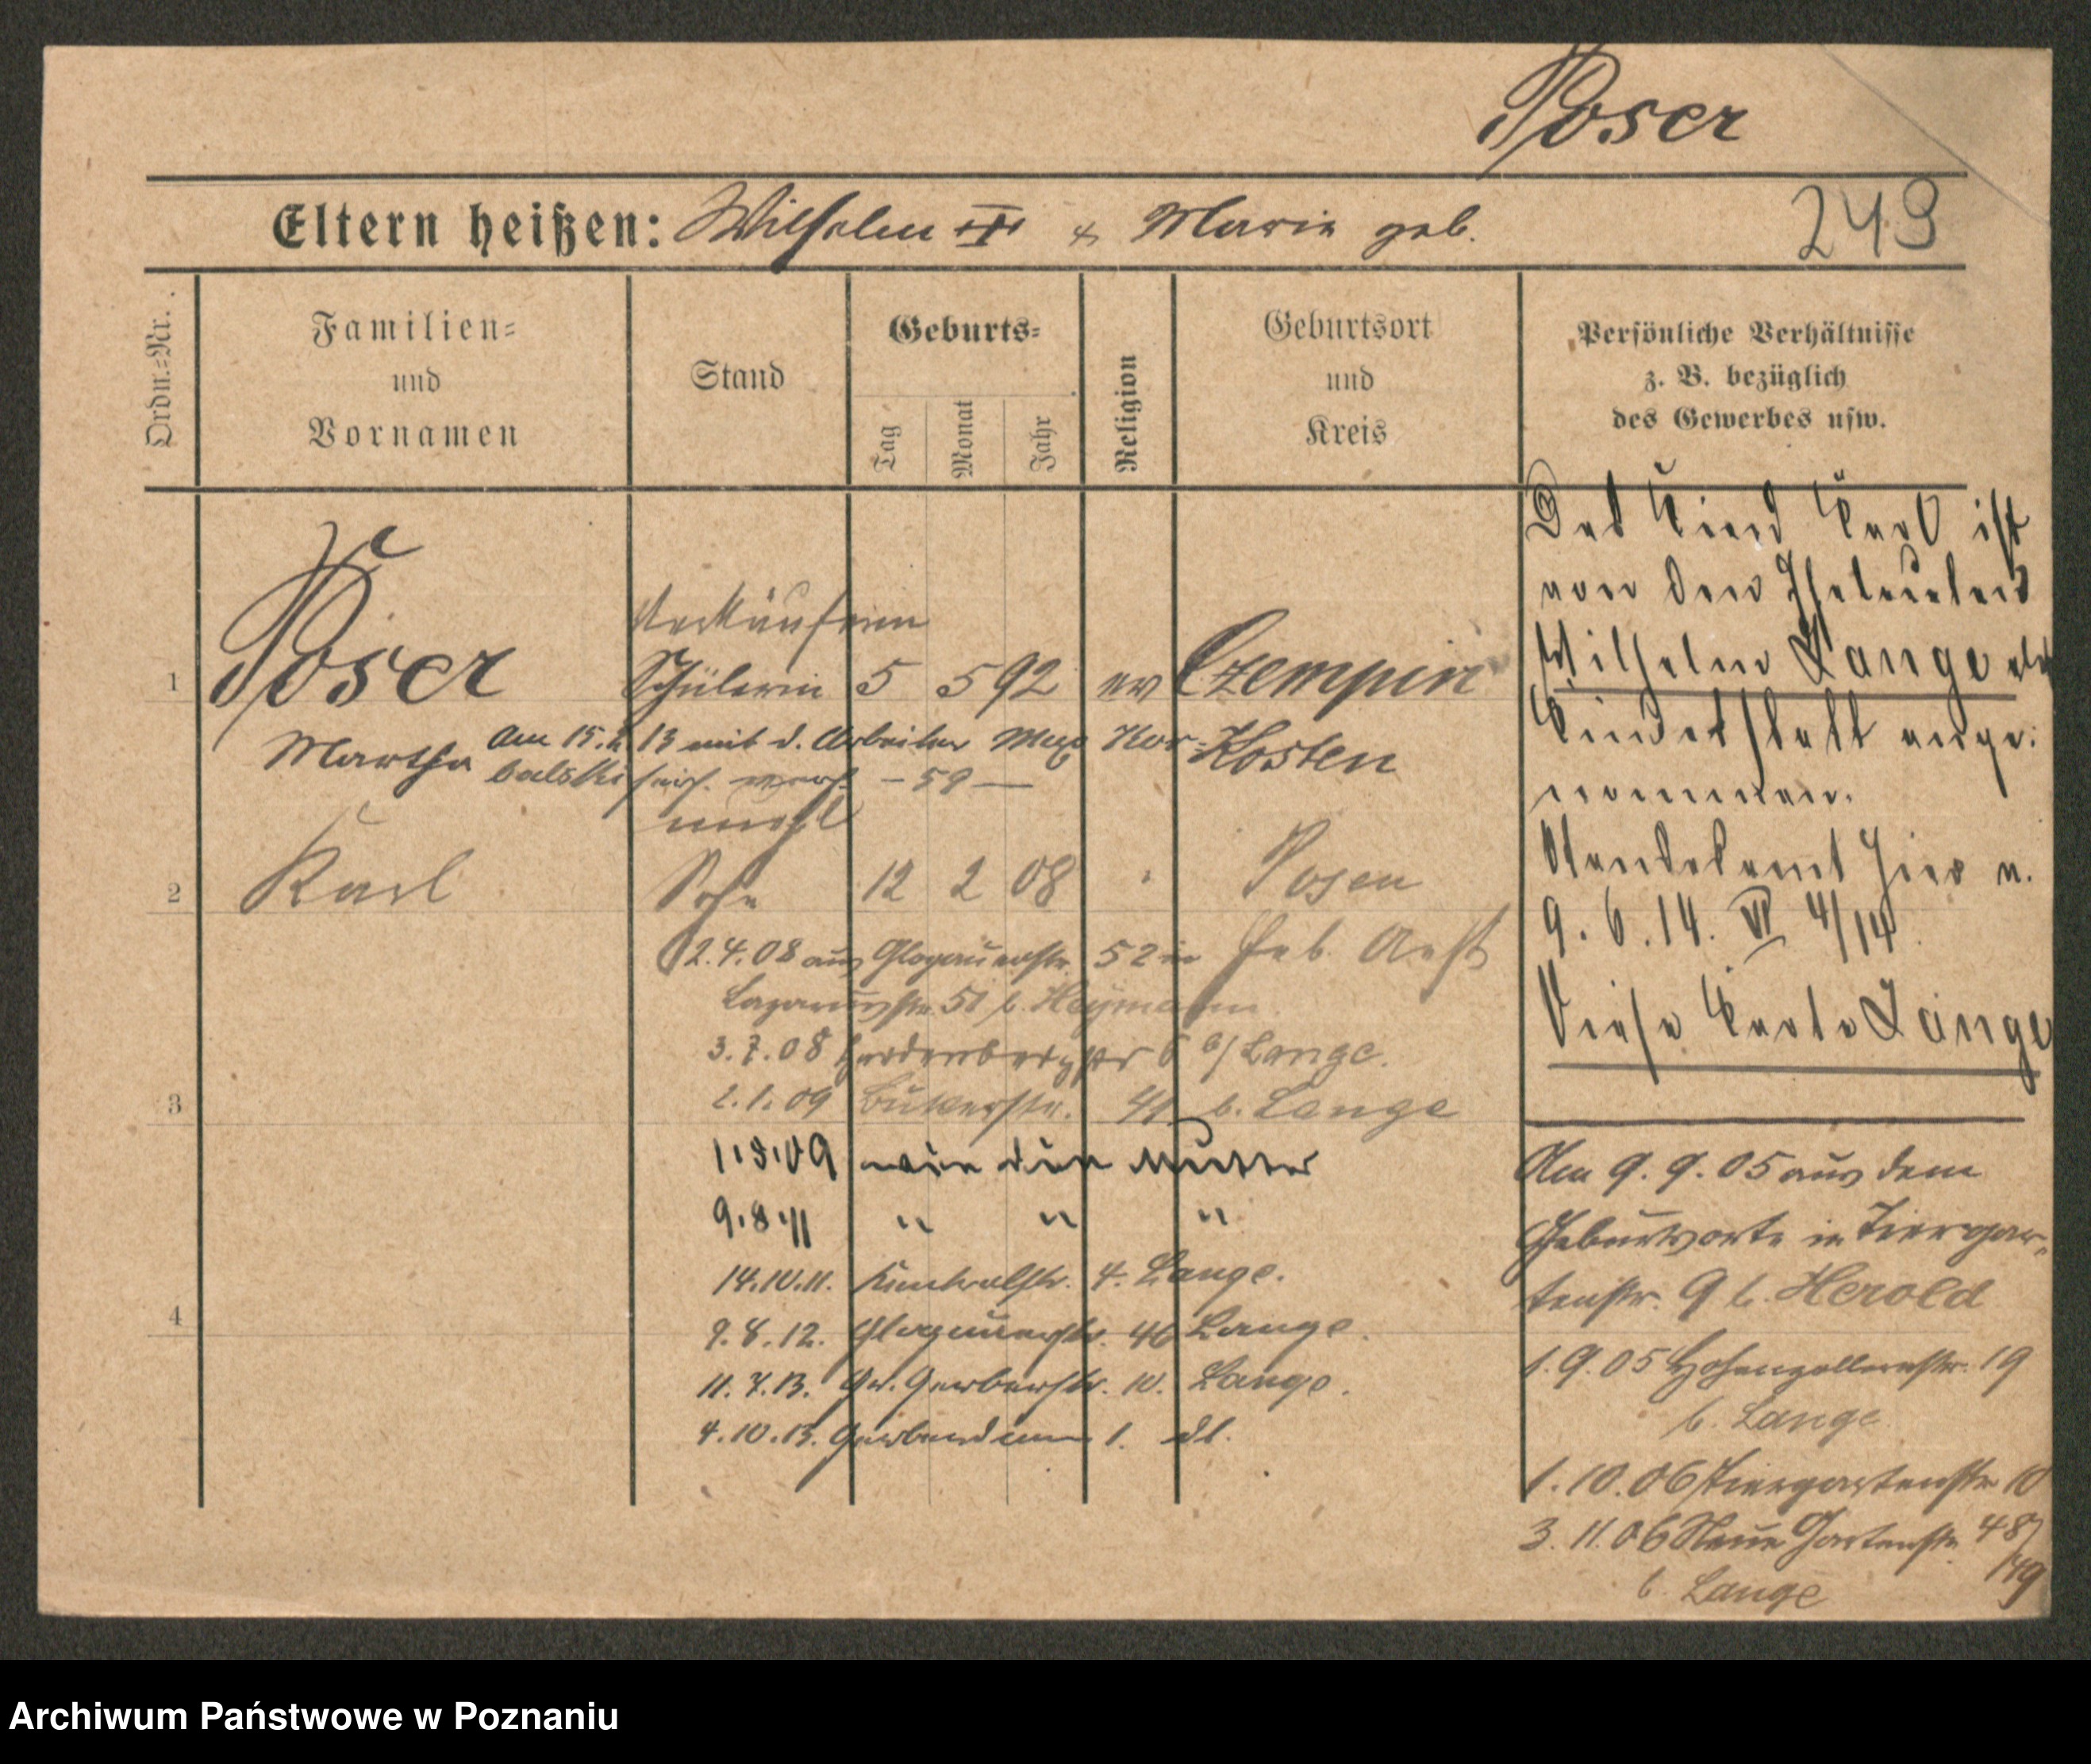 Poser
Eltern heißen: Wilhelm & Marie geb.
249
Ordn.-Nr.
Familien-
und
Vornamen
Stand
Geburts-
Tag
Monat
Jahr
Religion
Geburtsort
und
Kreis
Persönliche Verhältnisse
z. B. bezüglich
des Gewerbes usw.
Verkäuferin
1 Poser Schülerin 5 5 92 ev Czempin
Martha Am 15. 13 mit d. Arbeiter Max Kor- Kosten
balski hier verh. — 59 —
unehl
2 Karl Sohn 12 2 08 Posen
2.4.08 aus Glogauerstr. 52 in Geb. Anst
Lazarusstr. 51 b. Heymann
3.7.08 Hardenbergstr 6 b/ Lange.
2.1.09 Bukerstr. 41 b. Lange
3
1.3.09 wie die Mutter
9.8.11 " " "
14.10.11. 4. Lange.
4
9.8.12. Glogauerstr. 46 Lange.
11.7.13. Gr. Gerberstr. 10. Lange.
4.10.13. Gerberdamm 1. dl.
Das Kind Karl ist
von den Eheleuten
Wilhelm Lange an
Kindesstatt ange-
nommen.
Standesamt hier v.
9.6.14. VI 4/14
Siehe Karte Lange
Am 9.9.05 aus dem
Geburtsorte in Tiergar-
tenstr. 9 b. Herold
1.9.05 Hohenzollernstr. 19
b. Lange
1.10.06 Tiergartenstr 10
3.11.06 Neue Gartenstr. 48/49
b. Lange
Archiwum Państwowe w Poznaniu